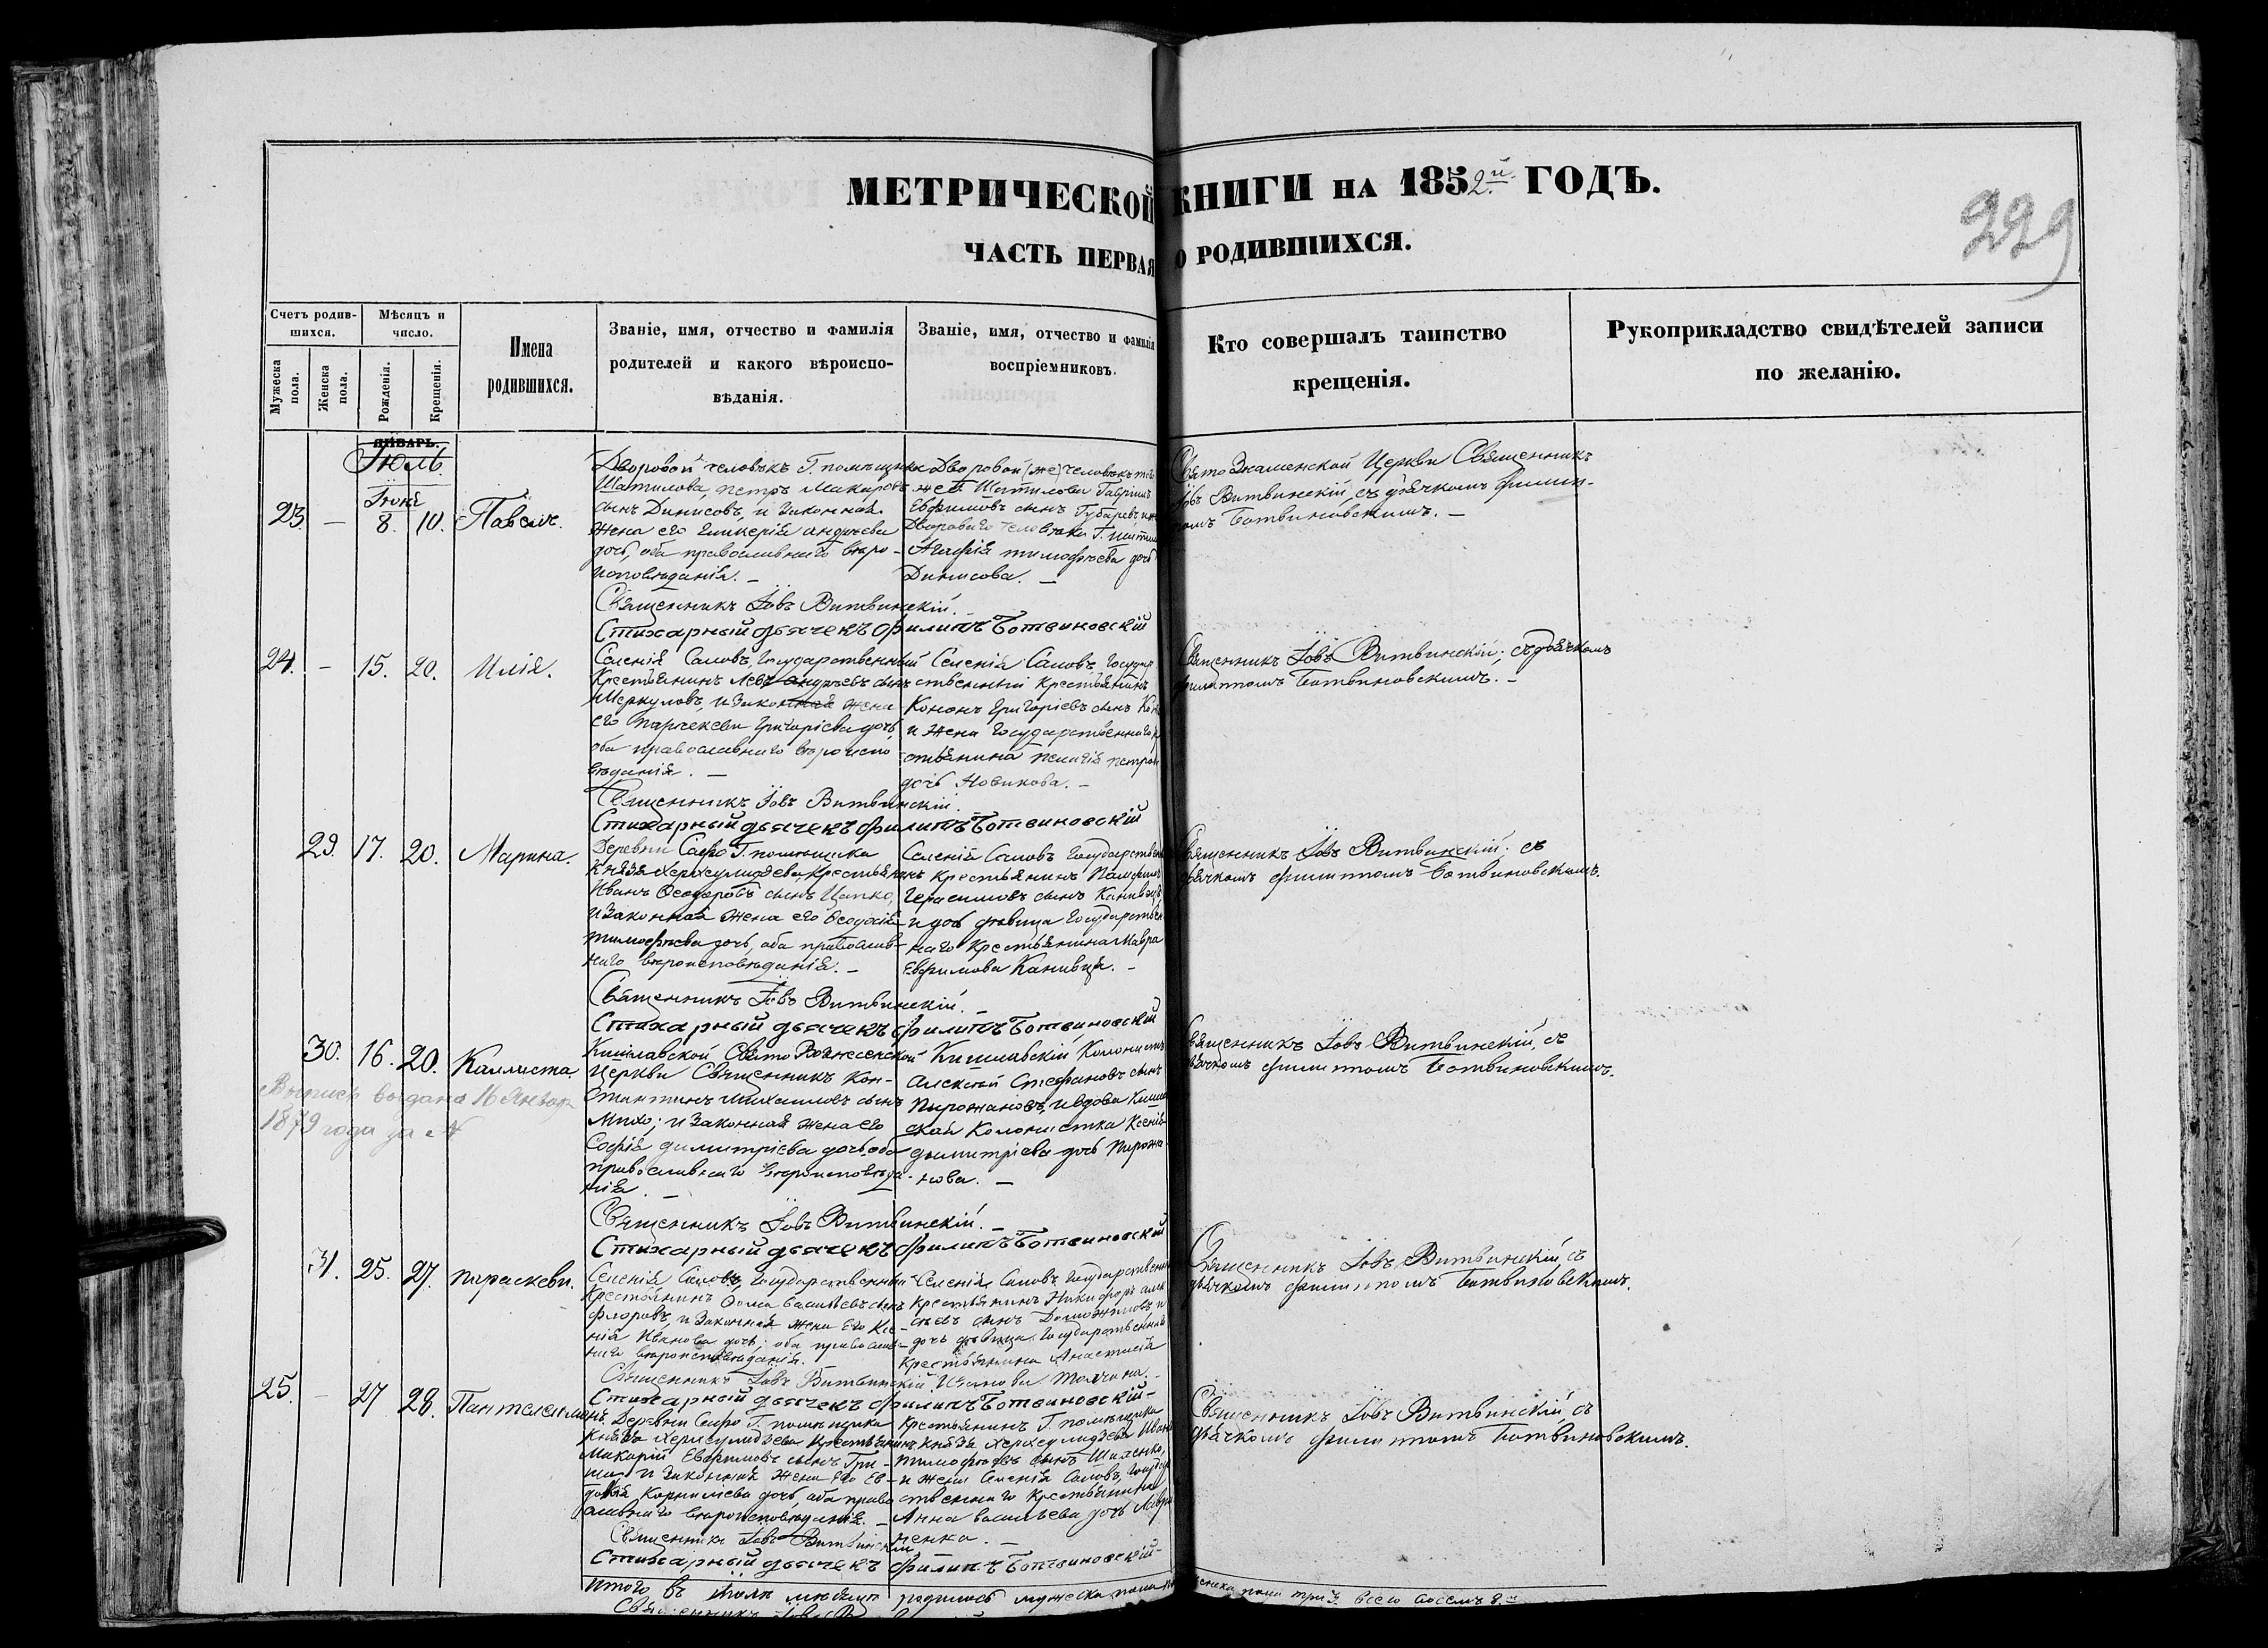 МЕТРИЧЕСКОЙ КНИГИ НА 1852й ГОДЪ.
ЧАСТЬ ПЕРВАЯ О РОДИВШИХСЯ.
229
Счетъ родив-
шихся.
Мужеска пола.
Женска пола.
Мѣсяцъ и
число.
Рожденія.
Крещенія.
Имена
родившихся.
Званіе, имя, отчество и фамилія
родителей и какого вѣроиспо-
вѣданія.
Званіе, имя, отчество и фамилія
воспріемниковъ.
Кто совершалъ таинство
крещенія.
Рукоприкладство свидѣтелей записи
по желанію.
ЯНВАРЬ.
Іюль.
Іюня
23. — 8. 10. Павелъ.
Дворовой человѣкъ Г. помѣщика
Шатилова, петръ Макаровъ
сынъ Денисовъ, и законная
жена его Гликерія андреева
дочь, оба православнаго вѣро-
исповѣданія. —
Дворовой (же) человѣкъ
же Г. Шатилова Гавріилъ
Евфимовъ сынъ Губаревъ
Двороваго человѣка Г.
Агафія тимофѣева дочь
Денисова. —
Свято Знаменской Церкви Священникъ
Іовъ Витвинскій, съ дьячкомъ филип-
помъ Ботвиновскимъ. —
Священникъ Іовъ Витвинскій.
Стихарный дьячекъ Филипъ Ботвиновскій
24. — 15. 20. Илія.
Селенія Саловъ, Государственный
Крестьянинъ Левъ андреевъ сынъ
Меркуловъ, и законная жена
его параскева Григоріева дочь,
оба православнаго вѣроиспо
вѣданія. —
Селенія Саловъ, Государ
ственный Крестьянинъ
Кононъ Григоріевъ сынъ
и жена Государственнаго
стьянина пелагія петрова
дочь Новикова. —
Священникъ Іовъ Витвинскій; съ дьячкомъ
филиппомъ Ботвиновскимъ. —
Священникъ Іовъ Витвинскій.
Стихарный дьячекъ Филипъ Ботвиновскій
29. 17. 20. Марина.
Деревни Г. помѣщика
Князя Херхеулидзева, крестьянинъ
Иванъ Ѳеодоровъ сынъ Цапко,
и законная жена его Ѳеодосія
тимофѣева дочь, оба православ-
наго вѣроисповѣданія. —
Селенія Саловъ Государствен
Крестьянинъ
Герасимовъ сынъ Канивецъ,
и дочь дѣвица Государствен
наго Крестьянина Мавра
Евфимова Канивца. —
Священникъ Іовъ Витвинскій; съ
дьячкомъ филиппомъ Ботвиновскимъ.
Священникъ Іовъ Витвинскій. —
Стихарный дьячекъ Филипъ Ботвиновскій
30. 16. 20. Каллиста.
Выпись выдана 16 Января
1879 года за №
Кишлавской Свято Вознесенской
Церкви Священникъ Кон-
стантинъ Михаиловъ сынъ
Михо; и законная жена его
Софія димитріева дочь, оба
православнаго вѣроисповѣда-
нія. —
Кишлавскій Колонистъ
алексѣй Стефановъ сынъ
Пирожановъ, и вдова
ская Колонистка Ксенія
димитріева дочь Пирожа-
нова. —
Священникъ Іовъ Витвинскій, съ
дьячкомъ филиппомъ Ботвиновскимъ.
Священникъ Іовъ Витвинскій. —
Стихарный дьячекъ Филипъ Ботвиновскій
31. 25. 27. параскева.
Селенія Саловъ, Государственный
Крестьянинъ Ѳома васильевъ сынъ
флоровъ, и законная жена его Ксе-
нія Иванова дочь; оба православ-
наго вѣроисповѣданія. —
Селенія Саловъ Государствен
Крестьянинъ Никифоръ алек
сѣевъ сынъ и
дочь дѣвица Государственнаго
Крестьянина Анастасія
Иванова
Священникъ Іовъ Витвинскій, съ
дьячкомъ филиппомъ Ботвиновскимъ.
Священникъ Іовъ Витвинскій
Стихарный дьячекъ Филипъ Ботвиновскій —
25. — 27 28. Пантелеимонъ.
Деревни Г. помѣщика
Князя Херхеулидзева Крестьянинъ
Макарій Евфимовъ сынъ Гри-
и законная жена его Ев-
докія Корниліева дочь, оба право
славнаго вѣроисповѣданія. —
Крестьянинъ Г. помѣщика
Князя Херхеулидзева Иванъ
тимофѣевъ сынъ
и жена Селенія Саловъ,
ственнаго Крестьянина
Анна васильева дочь
ненко. —
Священникъ Іовъ Витвинскій, съ
дьячкомъ филиппомъ Ботвиновскимъ.
Священникъ Іовъ Витвинскій
Стихарный дьячекъ Филипъ Ботвиновскій —
Итого въ Іюлѣ мѣсяцѣ родилось мужеска пола
женска пола три 3. всего